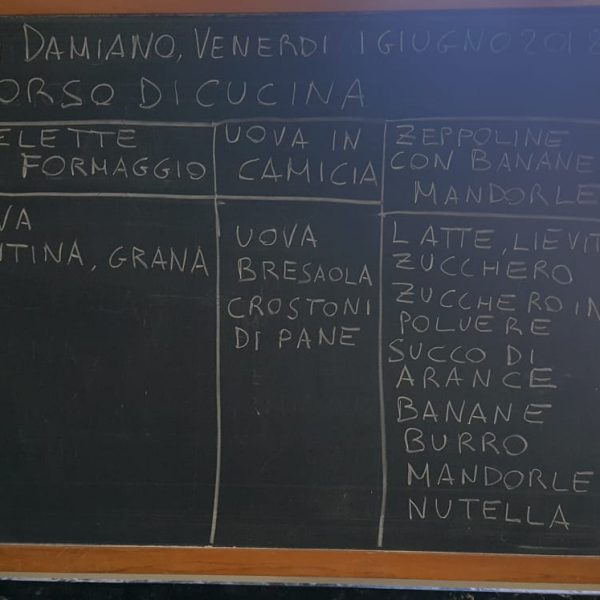 DAMIANO, VENERDI 1 GIUGNO 2012
ORSO DI CUCINA
ELETTE
FORMAGGIO
UOVA IN
CAMICIA
ZEPPOLINE
CON BANANE
MANDORLE
VA
NTINA, GRANA
UOVA
BRESAOLA
CROSTONI
DI PANE
LATTE, LIEVIT
ZUCCHERO
ZUCCHERO IN
POLVERE
SUCCO DI
ARANCE
BANANE
BURRO
MANDORLE
NUTELLA